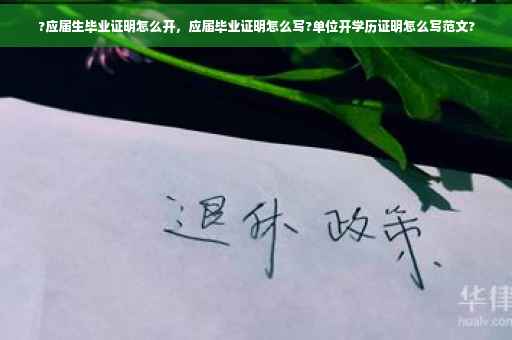 ?应届生毕业证明怎么开，应届毕业证明怎么写?单位开学历证明怎么写范文?
退休 政策
华律
hualv.com